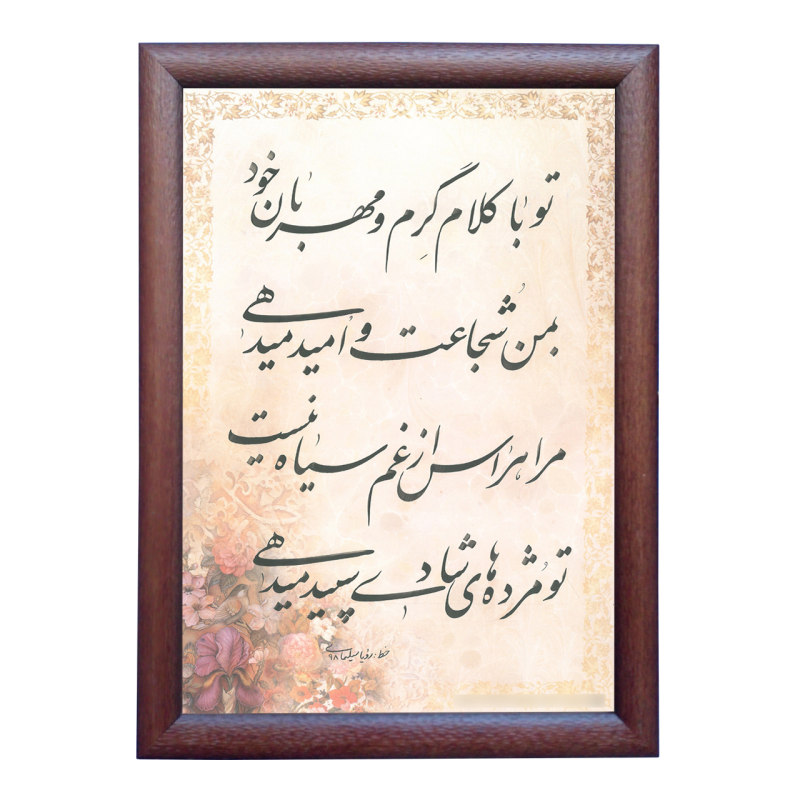 تو با کلام گَرم و مهربان خود
بمن شُجاعت و اُمید میدهی
مرا هراس از غم سیاه نیست
تو مُژده های شادی سپید میدهی
خط: رؤیا سلیمانی ۹۸